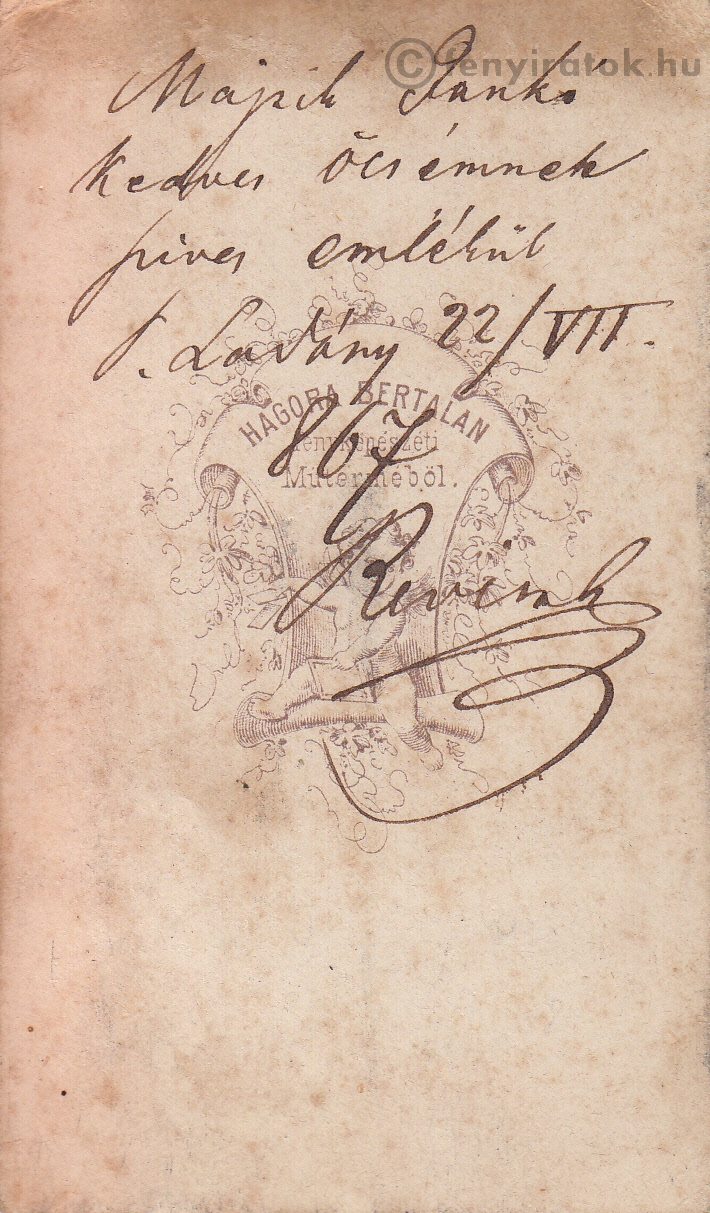 ©fenyiratok.hu
Majzik Jankó
kedves öcsémnek
szives emlékül
P. Ladány 22/VII.
867
HAGORA BERTALAN
fényképészeti
Műterméből.